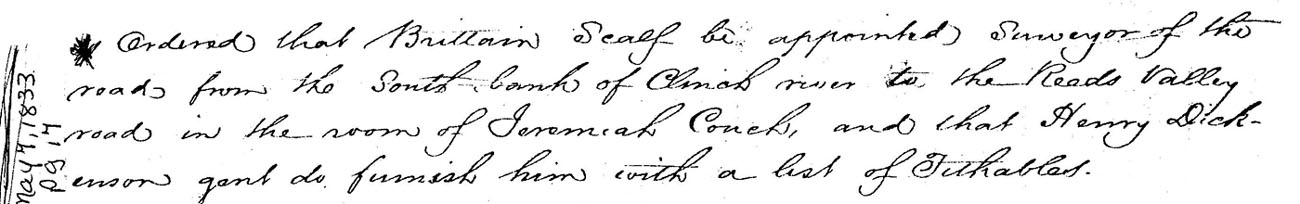 Ordered that Brittain Scalf be appointed Surveyor of the
road from the South bank of Clinch river to the Reeds Valley
road in the room of Jeremiah Couch, and that Henry Dick-
enson gent do furnish him with a list of Tithables.
May 7, 1833
pg 14